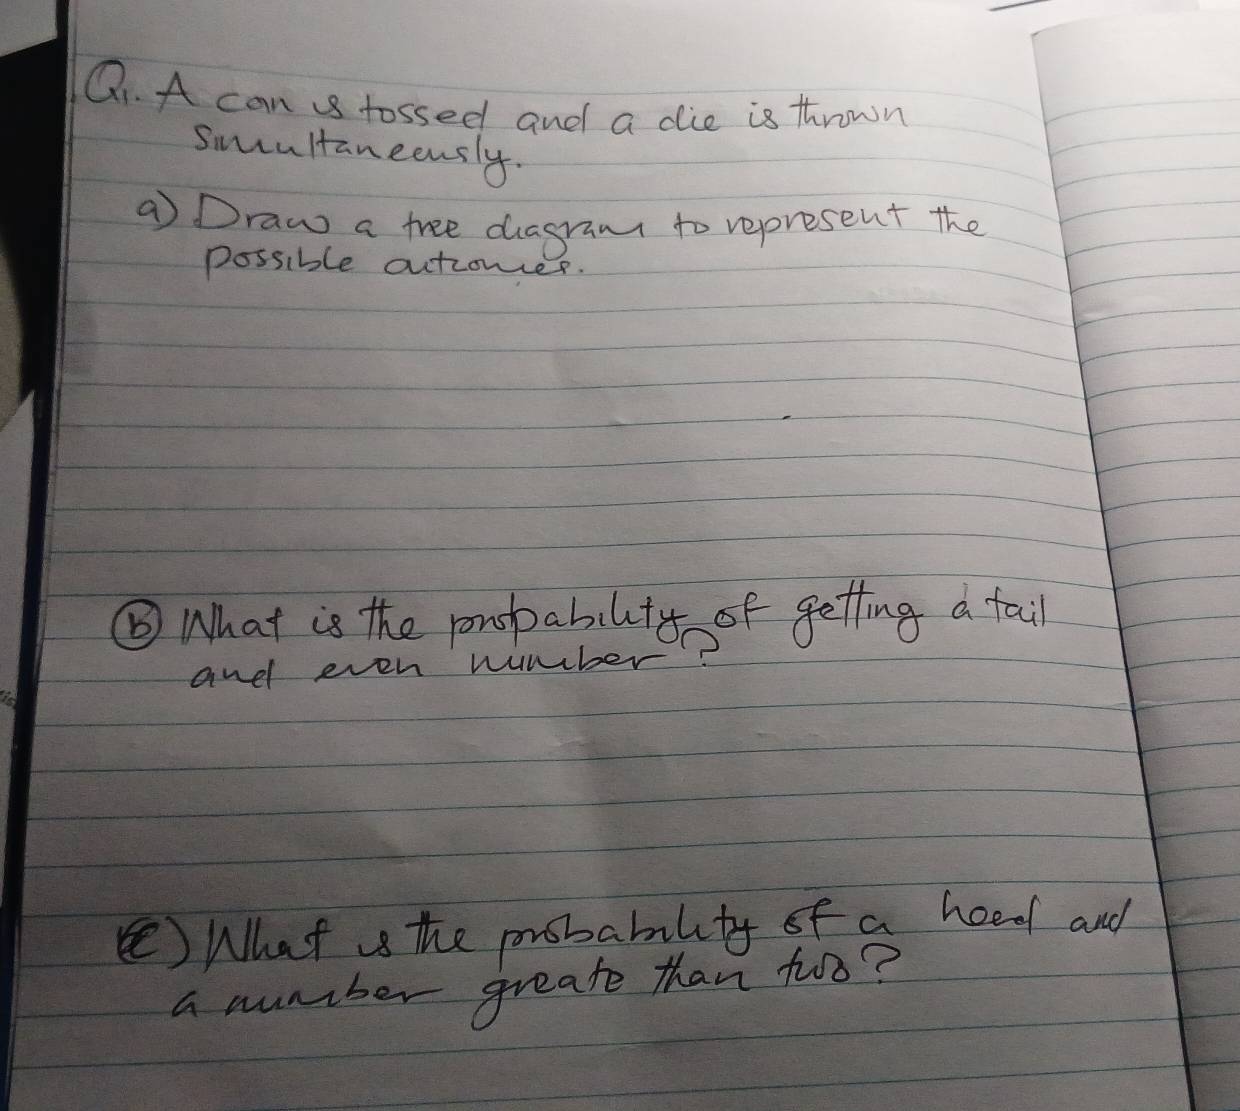 Q1. A coin is tossed and a die is thrown
simultaneously.
a) Draw a tree diagram to represent the
possible outcomes.
B What is the probability of getting a tail
and even number?
c) What is the probability of a head and
a number greate than two?